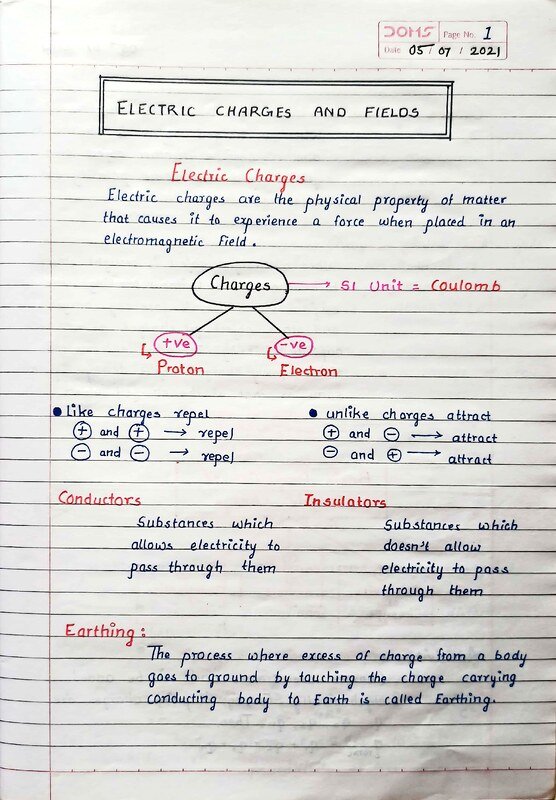 DOMS Page No. 1
Date 05 / 07 / 2021
ELECTRIC CHARGES AND FIELDS
Electric Charges
Electric charges are the physical property of matter
that causes it to experience a force when placed in an
electromagnetic field.
Charges → SI Unit = Coulomb
+ve -ve
Proton Electron
• Like charges repel
+ and + → repel
- and - → repel
• unlike charges attract
+ and - → attract
- and + → attract
Conductors
Substances which
allows electricity to
pass through them
Insulators
Substances which
doesn't allow
electricity to pass
through them
Earthing :
The process where excess of charge from a body
goes to ground by touching the charge carrying
conducting body to Earth is called Earthing.